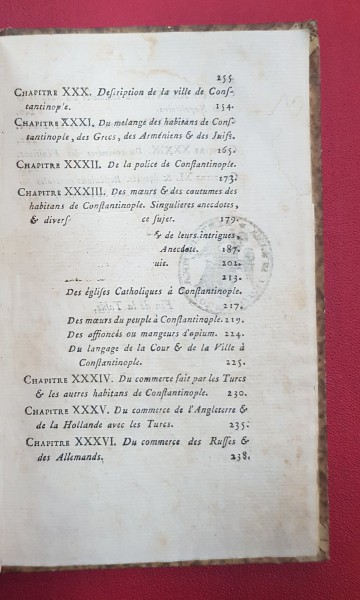 255
CHAPITRE XXX. Description de la ville de Cons-
tantinop'e. 154.
CHAPITRE XXXI. Du mélange des habitans de Cons-
tantinople, des Grecs, des Arméniens & des Juifs.
165.
CHAPITRE XXXII. De la police de Constantinople.
173.
CHAPITRE XXXIII. Des mœurs & des coutumes des
habitans de Constantinople. Singulieres anecdotes,
& divers ce sujet. 179.
& de leurs intrigues.
Anecdote. 187.
uie. 202.
213.
Des églises Catholiques à Constantinople.
217.
Des mœurs du peuple à Constantinople. 219.
Des affioncés ou mangeurs d'opium. 224.
Du langage de la Cour & de la Ville à
Constantinople. 225.
CHAPITRE XXXIV. Du commerce fait par les Turcs
& les autres habitans de Constantinople. 230.
CHAPITRE XXXV. Du commerce de l'Angleterre &
de la Hollande avec les Turcs. 235.
CHAPITRE XXXVI. Du commerce des Russes &
des Allemands. 238.